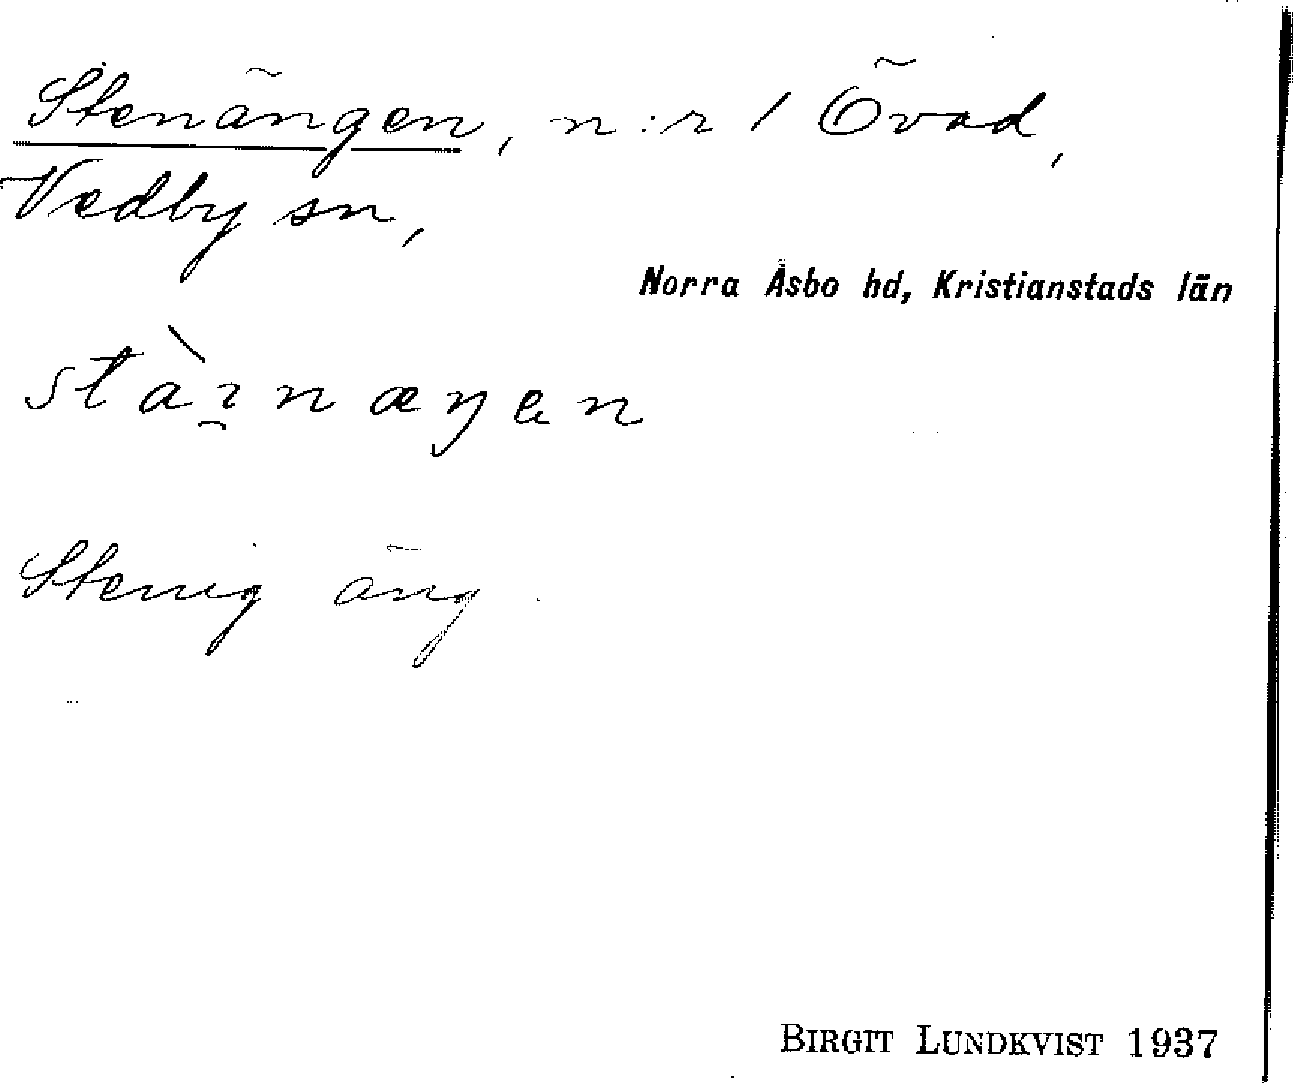 Stenängen, n:r 1 Övad,
Vedby sn,
Norra Åsbo hd, Kristianstads län
stàı̯næŋen
Stenig äng
BIRGIT LUNDKVIST 1937